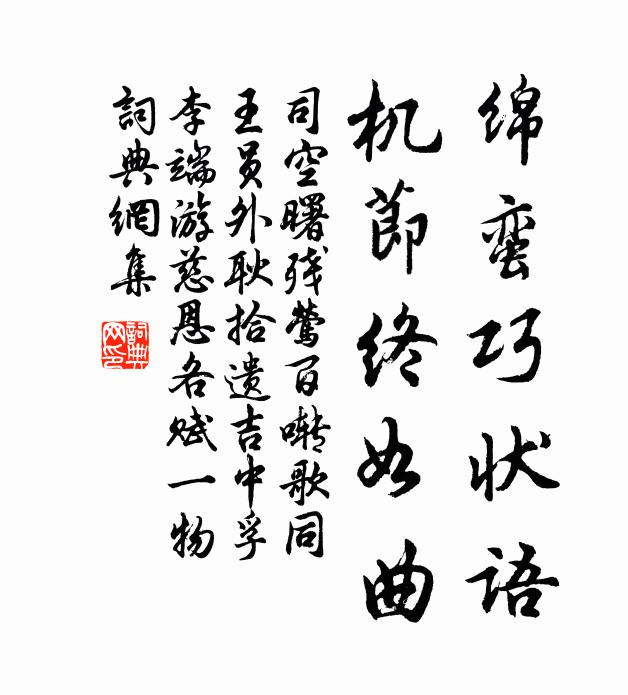 绵蛮巧状语
机节终如曲
司空曙残莺百啭歌同
王员外耿拾遗吉中孚
李端游慈恩各赋一物
詞典網集
詞典网印